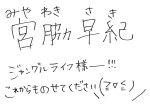 みや わき さ き
宮脇 早紀
ジャングルライフ様ー!!!
これからものせてください\(≧∇≦)